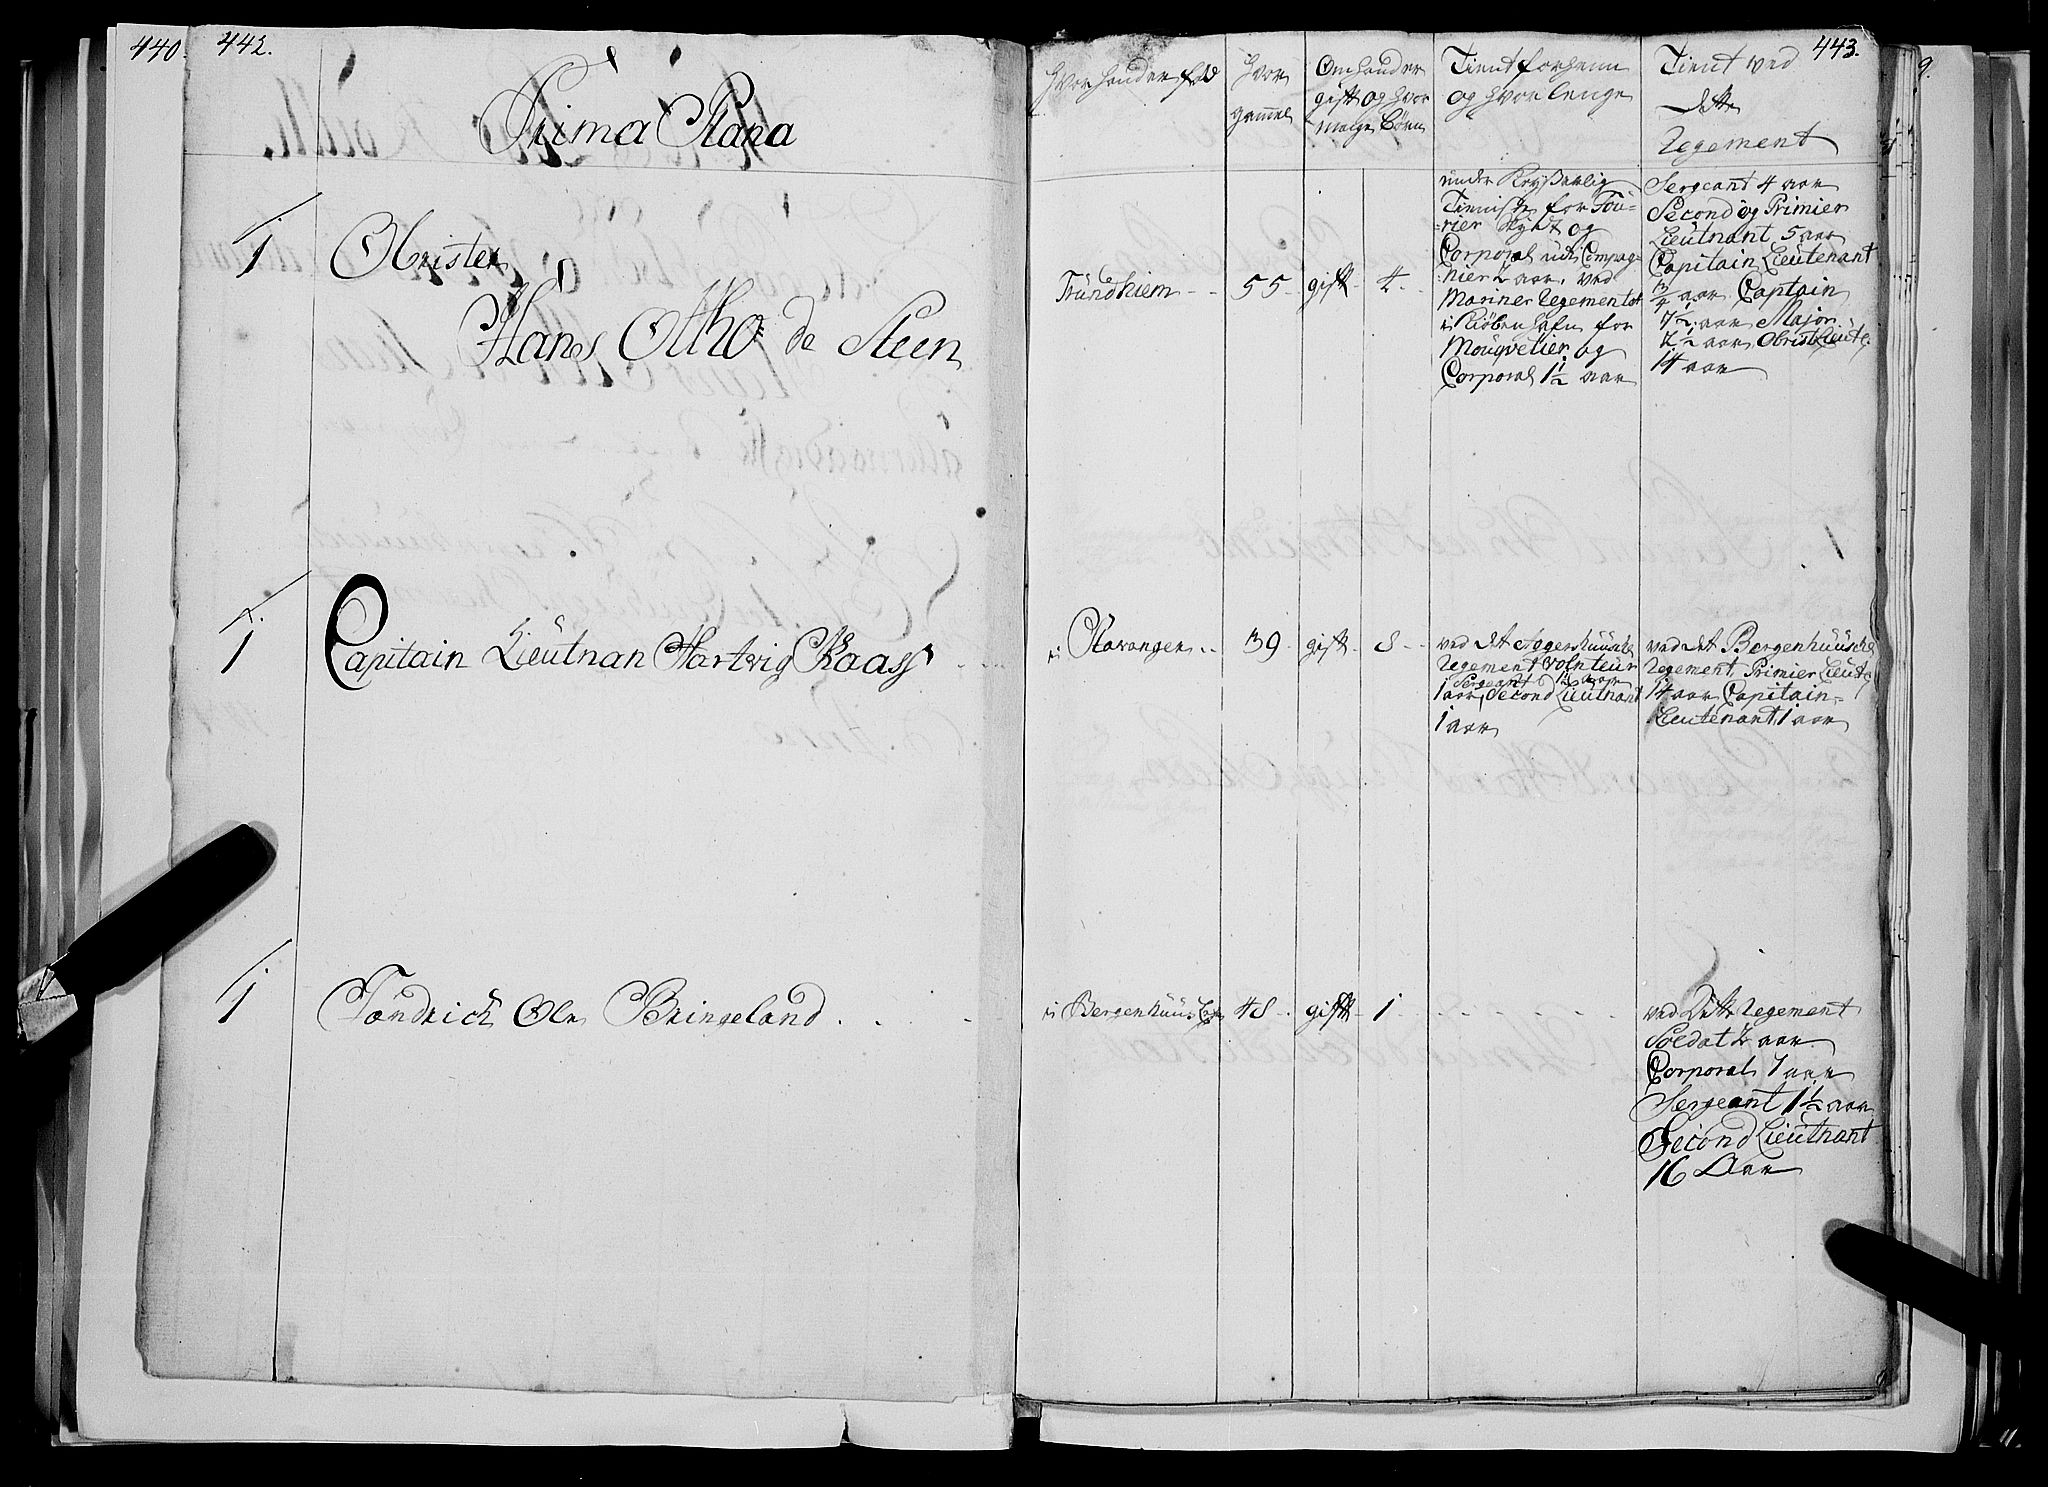 440.
442.
Prima Plana
1 Obrister
Hans Otho de Steen
1 Capitain Lieutnan Hartvig Kaass
1 Fændrich Ole Bringeland
443.
9.
Hvor hand er fød
Hvor
gammel
Om hand er
gift og hvor
mange Børn
Tient forhenn
og hvor lenge
Tient ved
dette
Regement
Tründhiem
55
gift
4
under Keyserlig
Tieniste for Fou-
rier Skÿtz og
Corporal udi Compag-
nier 2 aar, ved
Mariner Regementet
i Kiöbenhafn for
Mousqvetier og
Corporal 1½ aar
Sergeant 4 aar
Second og Primier
Lieutnant 5 aar
Capitain Lieutenant
¾ aar Captain
7½ aar Major
2½ aar Obrist Lieut:
14 aar
i Stavanger
39
gift
8
ved det Aggershuuske
Regement Volnteur
Sergeant 1½ aar
1 aar, Second Lieutnant
1 aar
ved det Bergenhuusche
Regement Primier Lieut:
14 aar Capitain-
Lieutenant 1 aar
i Bergenhuus
48
gift
1
ved dette Regement
Soldat 2 aar
Corporal 7 aar
Sergeant 1½ aar
Second Lieutnant
16 Aar